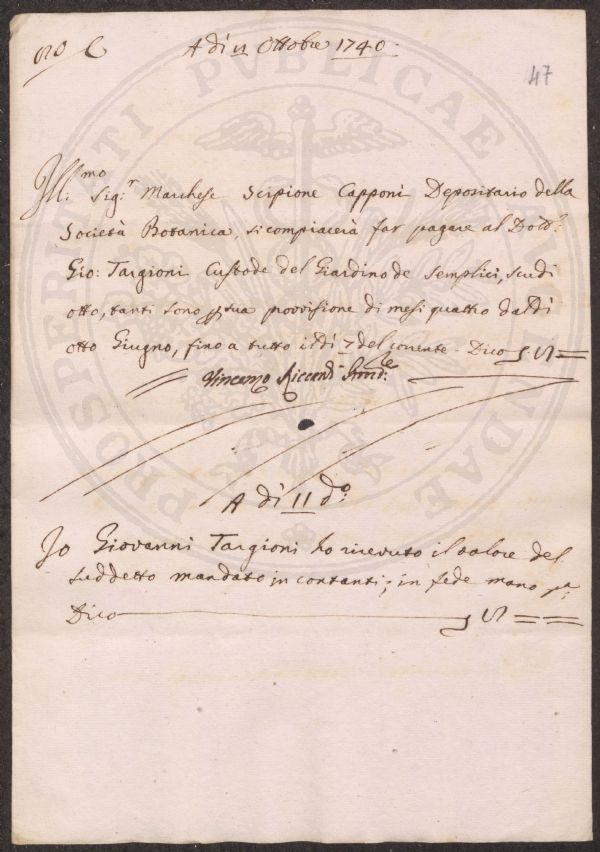 A dì 11 Ottobre 1740.
47
Ill:mo Sig:r Marchese Scipione Capponi Depositario della
Società Botanica, si compiacerà far pagare al Dott:r
Gio: Targioni Custode del Giardino de Semplici, scudi
otto, tanti sono p sua provvisione di mesi quattro dal dì
otto Giugno, fino a tutto il dì 7 del corrente - Dico
Vincenzo Riccardi
A dì 11 d:o
Io Giovanni Targioni ho ricevuto il valore del
suddetto mandato in contanti; in fede mano p:a
Dico
PROSPERITATI PVBLICAE